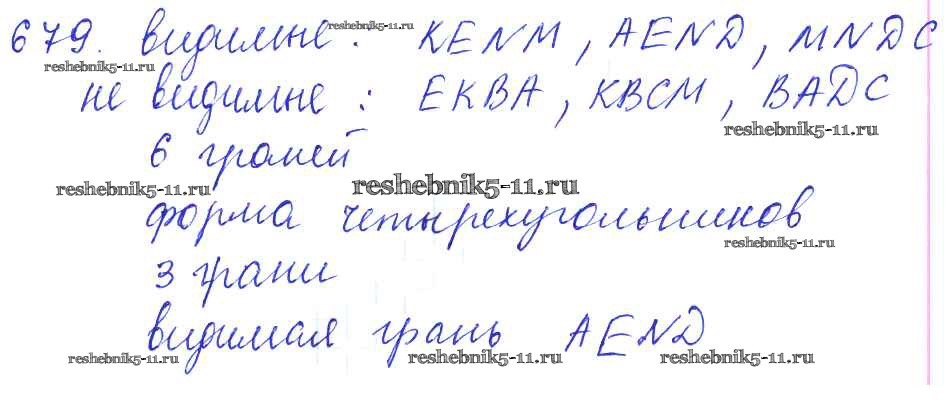 reshebnik5-11.ru
679. видимые: KENM, AEND, MNDC
reshebnik5-11.ru
не видимые: EKBA, KBCM, BADC
reshebnik5-11.ru
6 граней
reshebnik5-11.ru reshebnik5-11.ru
форма четырехугольников
reshebnik5-11.ru
3 грани
видимая грань AEND
reshebnik5-11.ru reshebnik5-11.ru reshebnik5-11.ru